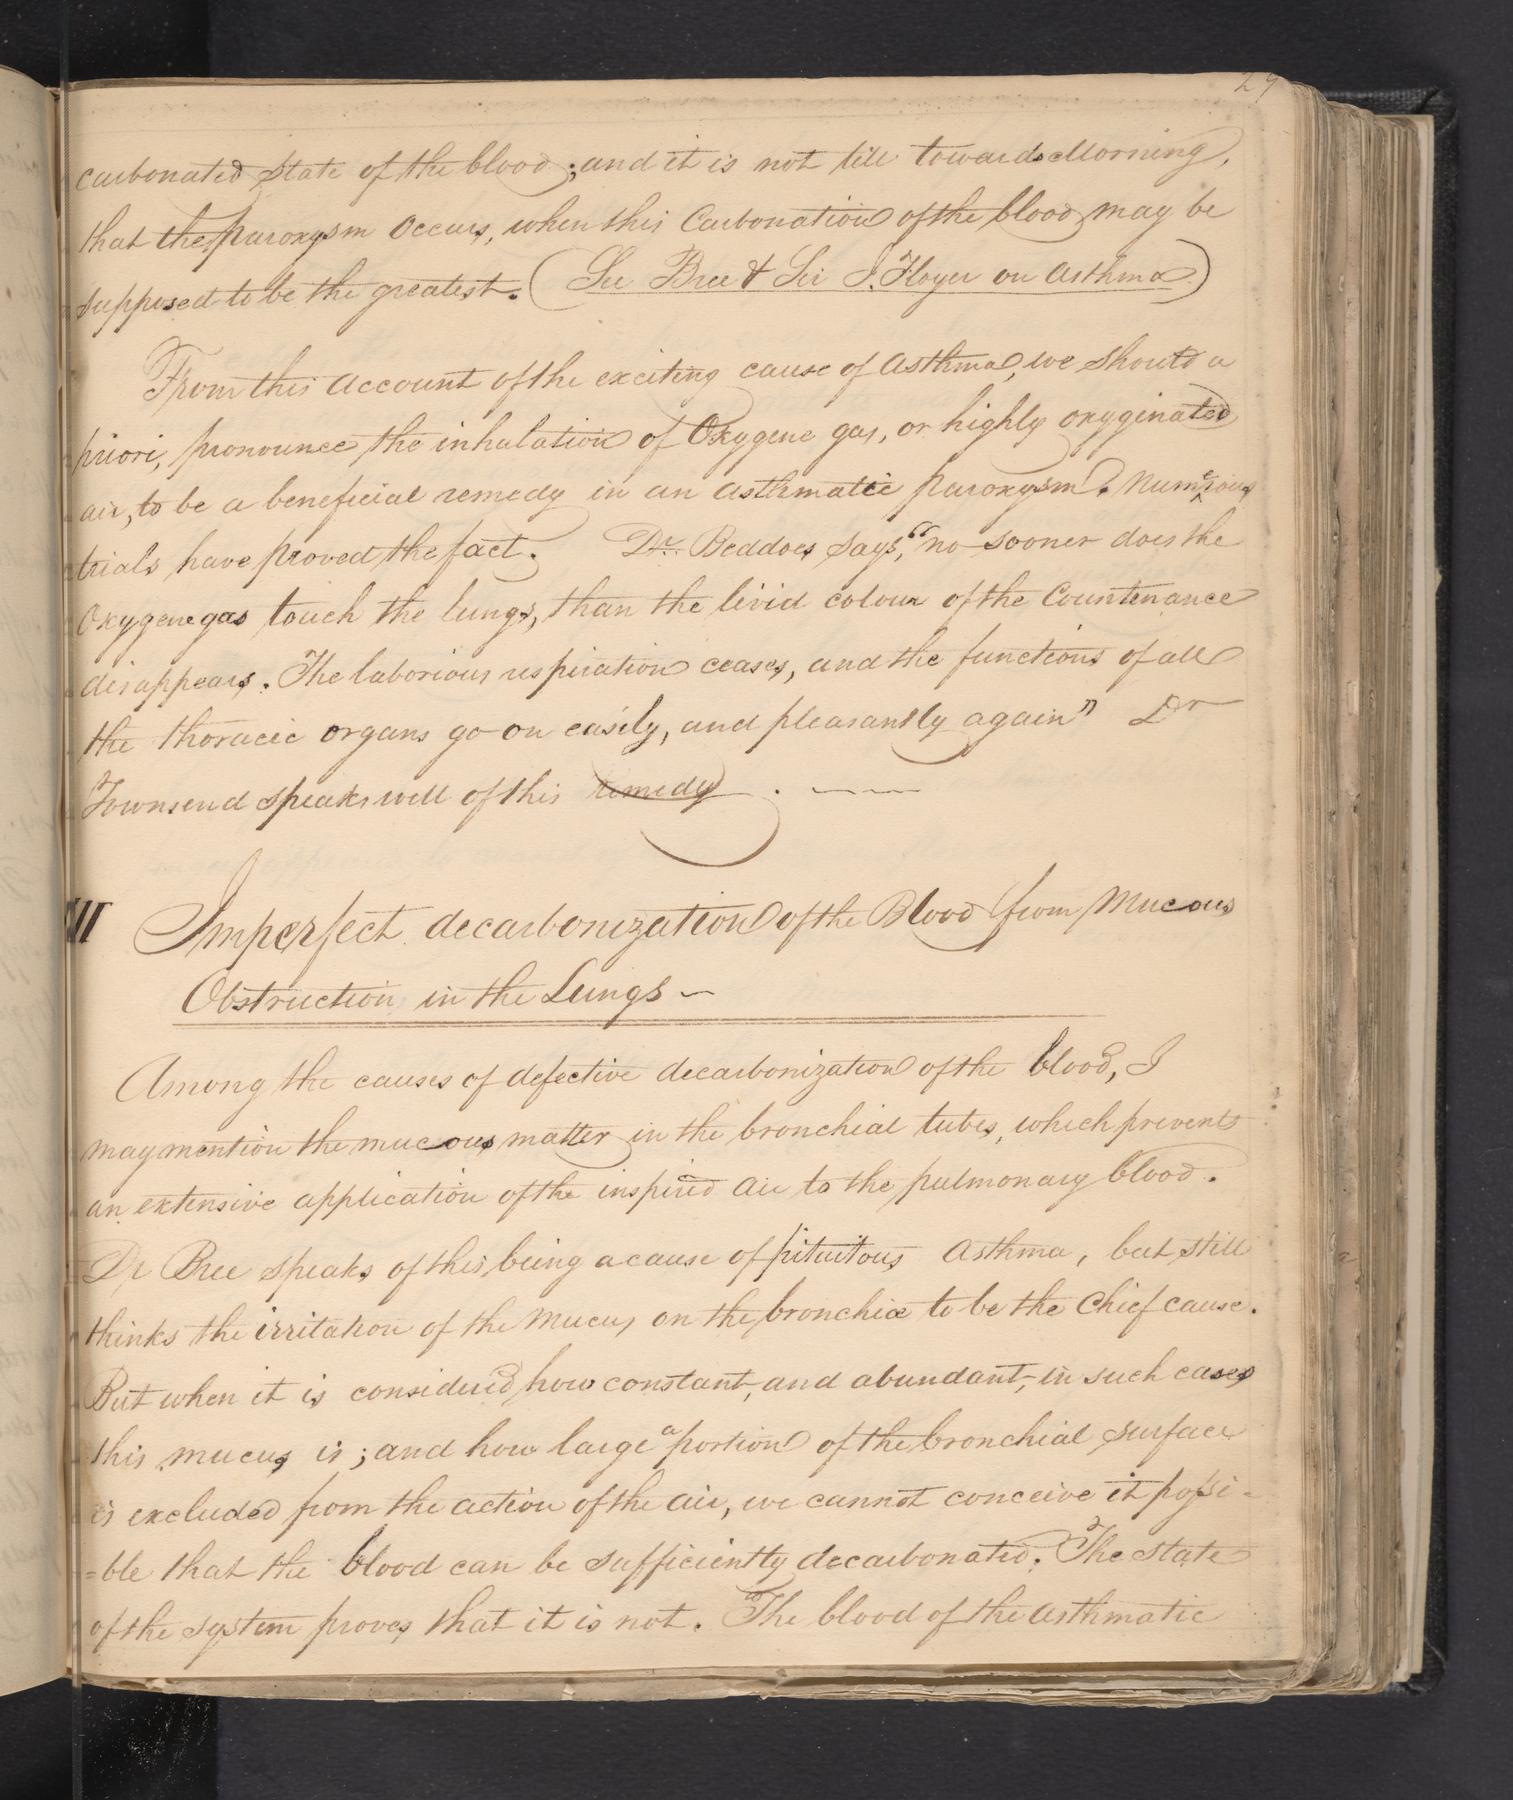 29
carbonated state of the blood; and it is not till towards Morning,
that the paroxysm occurs, when this Carbonation of the blood may be
supposed to be the greatest. (See Bree & Sir J. Floyer on Asthma)
From this account of the exciting cause of asthma, we should a
priori, pronounce the inhalation of Oxygene gas, or highly oxyginated
air, to be a beneficial remedy in an asthmatic paroxysm. Numerous
trials have proved the fact. Dr. Beddoes says, "no sooner does the
Oxygene gas touch the lungs, than the livid colour of the Countenance
disappears. The laborious respiration ceases, and the functions of all
the thoracic organs go on easily, and pleasantly again" Dr
Townsend speaks well of this remedy . ~~~
III Imperfect decarbonization of the Blood from Mucous
Obstruction in the Lungs ~
Among the causes of defective decarbonization of the blood, I
may mention the mucous matter in the bronchial tubes, which prevents
an extensive application of the inspired air to the pulmonary blood.
Dr Bree speaks of this being a cause of pituitous Asthma, but still
thinks the irritation of the Mucus on the bronchiæ to be the Chief cause.
But when it is considered how constant, and abundant, in such cases
this mucus is; and how large a portion of the bronchial surface
is excluded from the action of the air, we cannot conceive it possi-
=ble that the blood can be sufficiently decarbonated. The state
of the system proves that it is not. The blood of the asthmatic